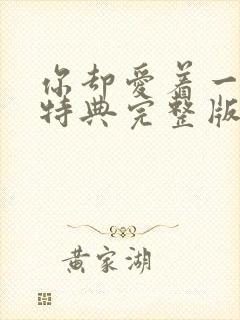 你却爱着一
特典完整版
黄家湖